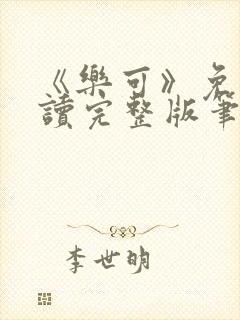 《樂可》免
讀完整版筆
李世明